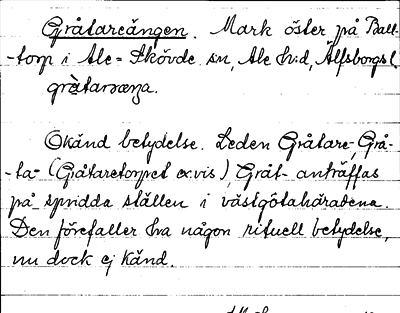 Gråtareängen. Mark öster på Ball-
-torp i Ale-Skövde sn, Ale h:d, Älfsborgs l.
gråtaræŋa.
Okänd betydelse. Leden Gråtare-, Grå-
-ta- (Gråtaretorpet ex.vis), Gråt- anträffas
på spridda ställen i västgötahäraderna.
Den förefaller ha någon rituell betydelse,
nu dock ej känd.